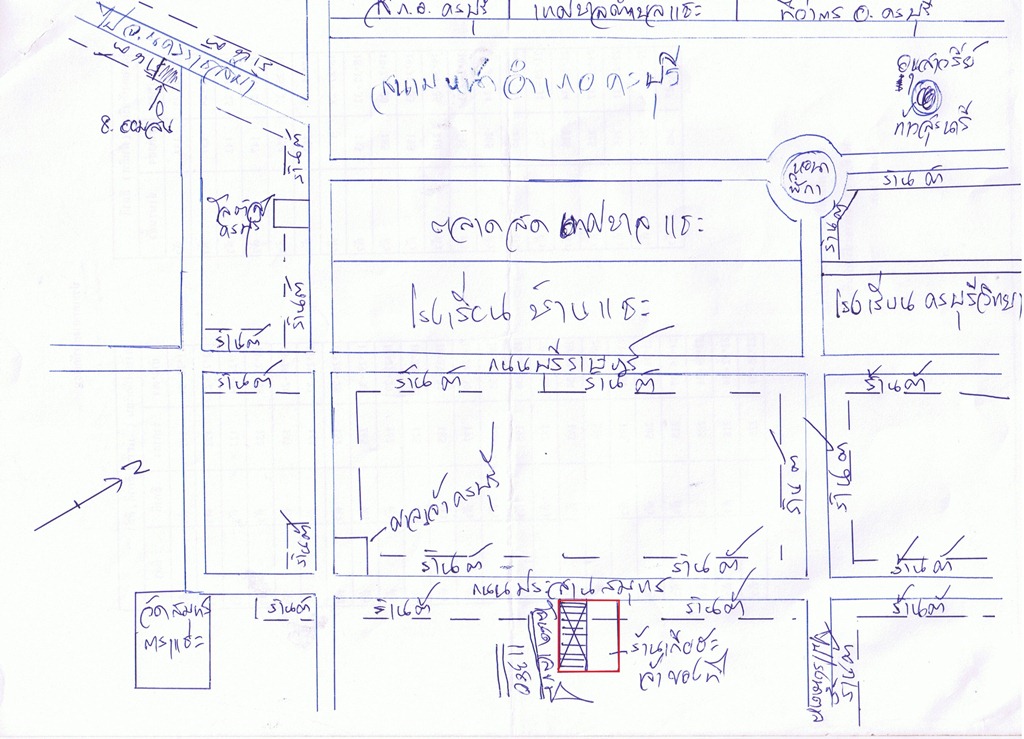 ส.ก.อ. ครบุรี
เทศบาลตำบลแชะ
ที่ว่าการ อ. ครบุรี
ธ. ออมสิน
สนามหน้าอำเภอครบุรี
อนุสาวรีย์
ท้าวสุรนารี
ร้านค้า
หอนา
ฬิกา
ร้านค้า
ร้านค้า
โลตัส
ครบุรี
ตลาดสด เทศบาล แชะ
ร้านค้า
โรงเรียน บ้านแชะ
โรงเรียน ครบุรีวิทยา
ร้านค้า
ถนนศรีราษฎร์
ร้านค้า
ร้านค้า
ร้านค้า
ร้านค้า
ศาลเจ้า ครบุรี
ร้านค้า
ร้านค้า
ร้านค้า
ร้านค้า
ร้านค้า
ร้านค้า
ถนนประสานสมุทร
วัดสมุทร
การแชะ
ร้านค้า
ร้านค้า
โฉนดเลขที่
11380
ร้านค้า
ร้านค้า
ร้านค้า